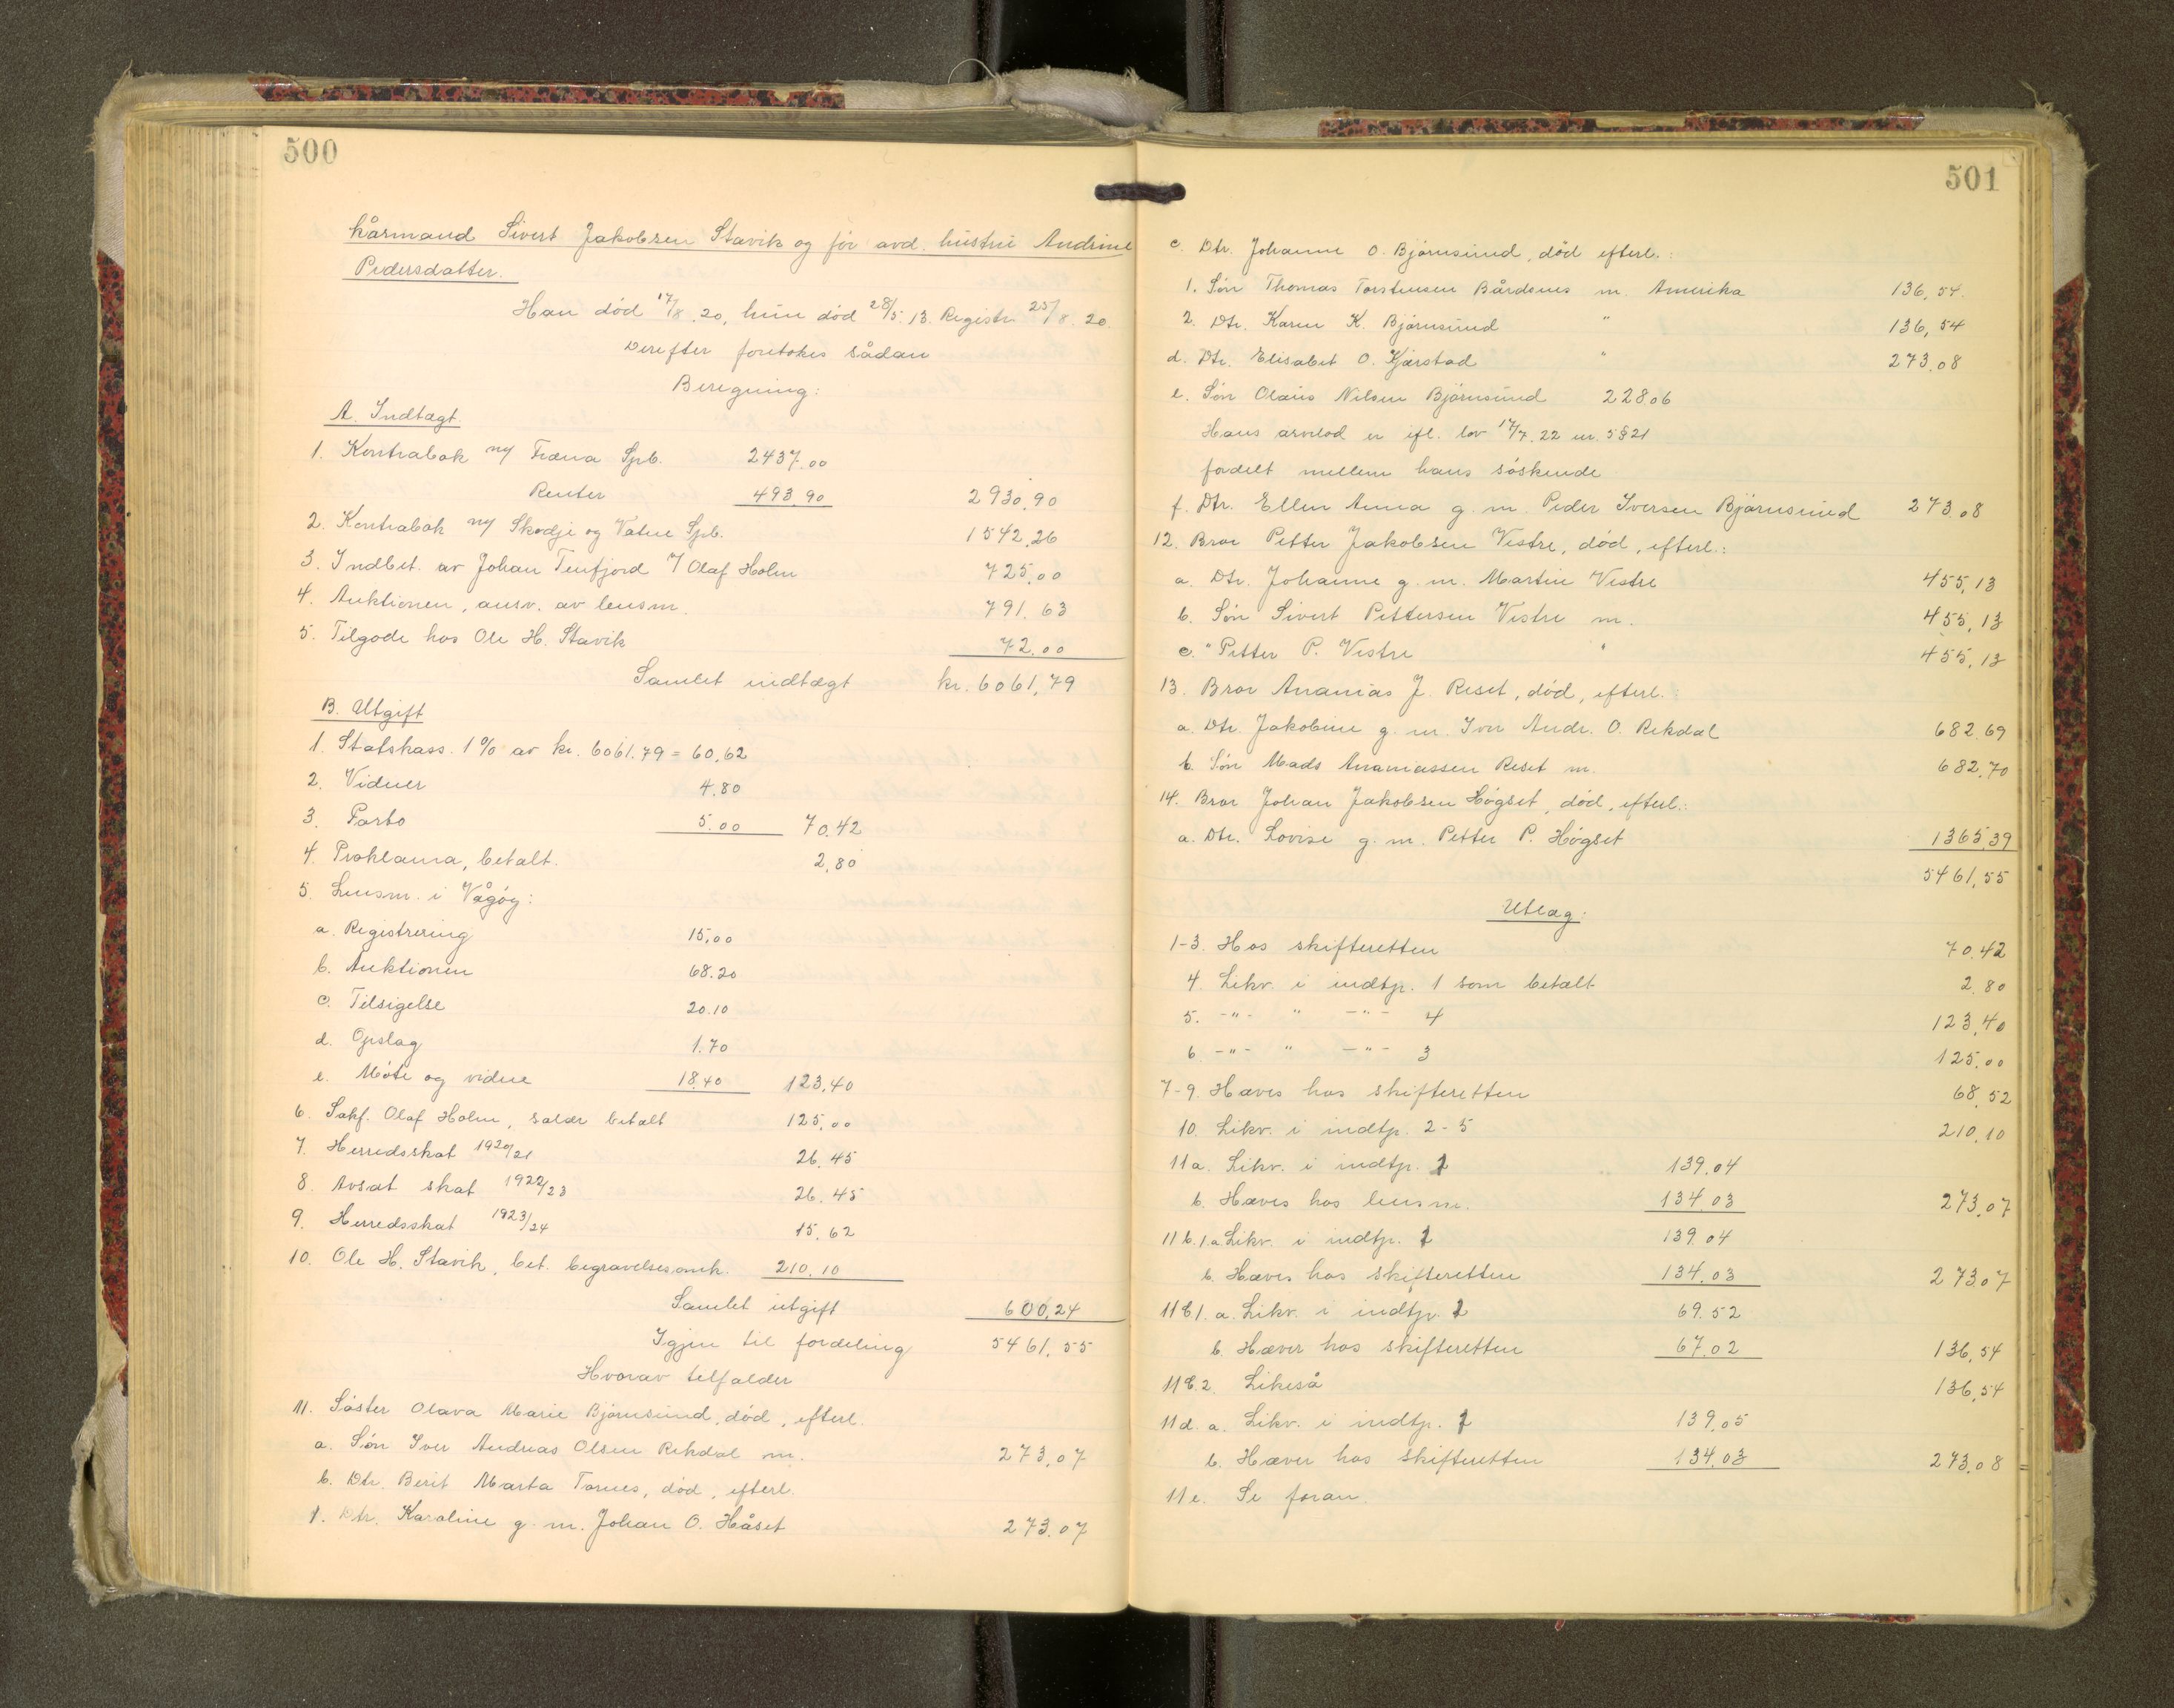 500
kårmand Sivert Jakobsen Stavik og før avd. hustru Andrine
Pedersdatter.
Han død 17/8.20, hun død 28/5.13. Registr. 25/8.20.
Derefter foretokes sådan
Beregning:
A. Indtægt
1. Kontrabok m/ Fræna Spb. 2437.00
Renter 493.90 2930.90
2. Kontrabok m/ Skodje og Vatne Spb. 1542.26
3. Indbet. av Johan Tenfjord v/ Olaf Holm 725.00
4. Auktionen, ansv. av lensm. 791.63
5. Tilgode hos Ole H. Stavik 72.00
Samlet indtægt kr. 6061,79
B. Utgift
1. Statskass. 1% av kr. 6061.79 = 60,62
2. Vidner 4.80
3. Porto 5.00 70.42
4. Proklama, betalt. 2,80
5. Lensm. i Vågøy:
a. Registrering 15,00
b. Auktionen 68.20
c. Tilsigelse 20.10
d. Opslag 1.70
e. Møte og vidne 18.40 123.40
6. Sakf. Olaf Holm, salær betalt 125,00
7. Herredsskat 1920/21 26.45
8. Avsat skat 1922/23 26.45
9. Herredsskat 1923/24 15.62
10. Ole H. Stavik, bet. begravelsesomk. 210.10
Samlet utgift 600,24
Igjen til fordeling 5461.55
Hvorav tilfalder
11. Søster Olava Marie Bjørnsund, død, efterl.
a. Søn Iver Andreas Olsen Rekdal m. 273,07
b. Dtr. Berit Marta Tornes, død, efterl.
1. Dtr. Karoline g. m. Johan O. Håset 273.07
501
c. Dtr. Johanne O. Bjørnsund, død efterl.:
1. Søn Thomas Torstensen Bårdsnes m. Amerika 136,54.
2. Dtr. Karen K. Bjørnsund " 136,54
d. Dtr. Elisabet O. Kjørstad " 273.08
e. Søn Olaus Nilsen Bjørnsund 228.06
Hans arvelod er ifl. lov 17/7.22 nr. 5 § 21
fordelt mellem hans søskende
f. Dtr. Ellen Anna g. m. Peder Iversen Bjørnsund 273.08
12. Bror Petter Jakobsen Vestre, død, efterl.:
a. Dtr. Johanne g. m. Martin Vestre 455,13
b. Søn Sivert Pettersen Vestre m. 455,13
c. " Petter P. Vestre " 455,13
13. Bror Ananias J. Reset, død, efterl.:
a. Dtr. Jakobine g. m. Iver Andr. O. Rekdal 682.69
b. Søn Mads Ananiassen Reset m. 682,70
14. Bror Johan Jakobsen Høgset, død, efterl.:
a. Dtr. Lovise g. m. Petter P. Høgset 1365,39
5461,55
Utlæg:
1-3. Hos skifteretten 70.42
4. Likv. i indtp. 1 som betalt 2.80
5. -"- " -"- 4 123,40
6 -"- " -"- 3 125.00
7-9. Hæves hos skifteretten 68,52
10. Likv. i indtp. 2-5 210,10
11a. Likv. i indtp. 1 139.04
b. Hæves hos lensm. 134.03 273.07
11b.1.a. Likv. i indtp. 1 139.04
b. Hæves hos skifteretten 134.03 273.07
11c1. a. Likv. i indtp. 1 69.52
b. Hæver hos skifteretten 67.02 136,54
11c.2. Likeså 136,54
11d. a. Likv. i indtp. 1 139.05
b. Hæver hos skifteretten 134.03 273.08
11e. Se foran.